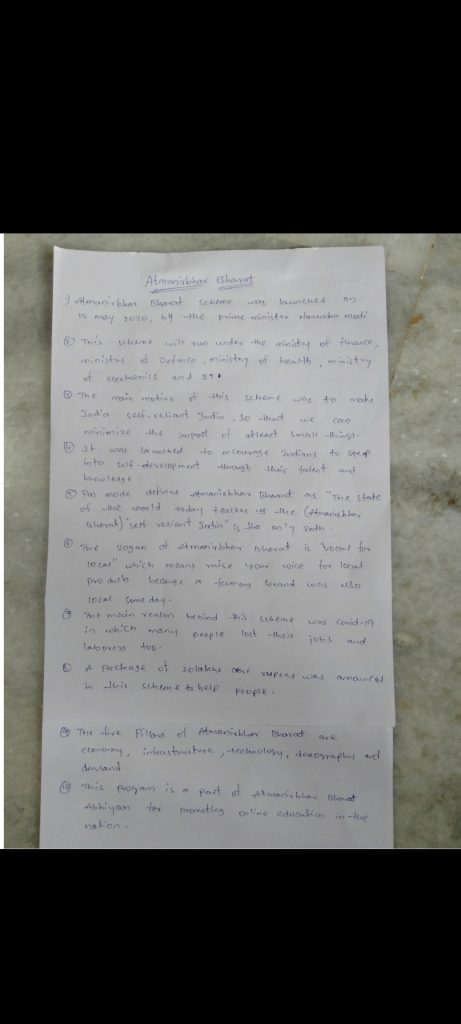 Atmanirbhar Bharat
1) Atmanirbhar Bharat scheme was launched on
12 may 2020, by the prime minister Narendra modi
② This scheme will run under the ministry of finance,
ministry of Defence, ministry of health, ministry
of electronics and IT.
③ The main motive of this scheme was to make
India self-reliant India, so that we can
minimize the import of atleast small things.
④ It was launched to encourage Indians to step
into self-development through their talent and
knowledge.
⑤ Pm mode defines Atmanirbhar Bharat as "The state
of the world today teaches us the (Atmanirbhar
Bharat) "self reliant India" is the only path.
⑥ The slogan of Atmanirbhar Bharat is "vocal for
local" which means raise your voice for local
products because a famous brand was also
local some day.
⑦ The main reason behind this scheme was covid-19
in which many people lost their jobs and
laborers too.
⑧ A package of 20lakhs rupees was announced
in this scheme to help people.
⑨ The five Pillars of Atmanirbhar Bharat are
economy, infrastructure, technology, demography and
demand.
⑩ This program is a part of Atmanirbhar Bharat
Abhiyan for promoting online education in the
nation.